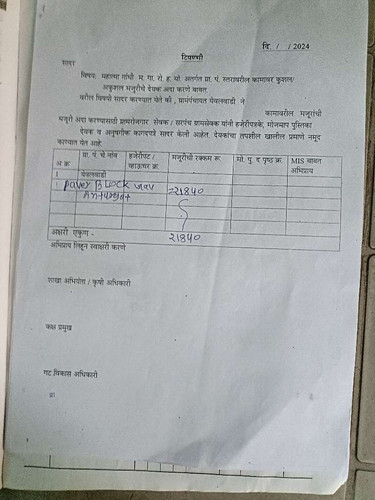 दि. / / 2024
टिपण्णी
सादर
विषय: महात्मा गांधी म. गा. रो. ह. यो. अंतर्गत ग्रा. पं. स्तरावरील कामावर कुशल/
अकुशल मजुरीचे देयक अदा करणे बाबत.
वरील विषयी सादर करण्यात येते की, ग्रामपंचायत येयलवाडी ने
कामावरील मजुरांची
मजुरी अदा करण्यासाठी ग्रामरोजगार सेवक / सरपंच ग्रामसेवक यांनी हजेरीपत्रके, मोजमाप पुस्तिका
देयक व अनुषगीक कागदपत्रे सादर केली आहेत. देयकांचा तपशील खालील प्रमाणे नमूद
करण्यात येत आहे.
अ क्र. ग्रा. पं. चे नांव हजेरीपट / व्हाऊचर क्र. मजुरीची रक्कम रू. मो. पु. व पृष्ठ क्र. MIS बाबत अभिप्राय
1 येयलवाडी
paver Block =21840
अक्षरी एकुण - 21840
अभिप्राय लिहून स्वाक्षरी करणे
शाखा अभियंता / कृषी अधिकारी
कक्ष प्रमुख
गट विकास अधिकारी